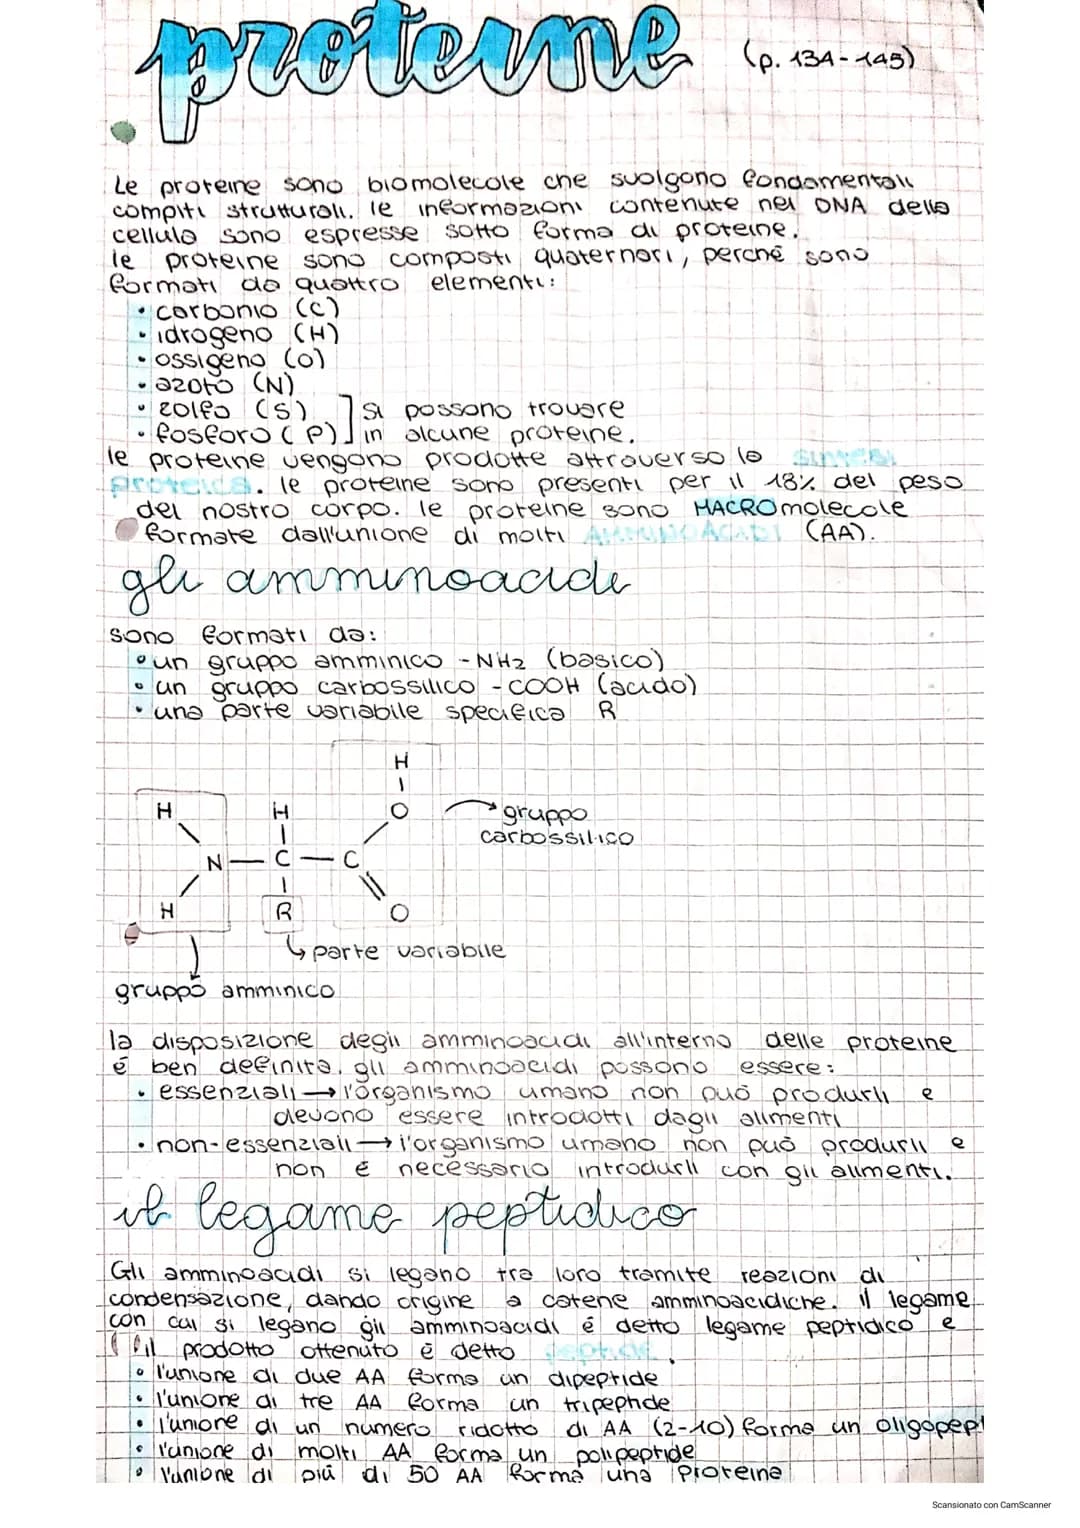 proteine (p. 134-145)
Le proteine sono biomolecole che svolgono fondamentali
compiti strutturali. le informazioni contenute nel DNA della
cellula sono espresse sotto forma di proteine.
le proteine sono composti quaternari, perché sono
formati da quattro elementi:
• carbonio (C)
• idrogeno (H)
• ossigeno (O)
• azoto (N)
• zolfo (S) ] si possono trovare
• fosforo (P) ] in alcune proteine.
le proteine vengono prodotte attraverso la sintesi
proteica. le proteine sono presenti per il 18% del peso
del nostro corpo. le proteine sono MACROmolecole
formate dall'unione di molti AMMINOACIDI (AA).
gli amminoacidi
sono formati da:
• un gruppo amminico -NH2 (basico)
• un gruppo carbossilico -COOH (acido)
• una parte variabile specifica R
H
H H O → gruppo
carbossilico
N — C — C
H R O
↳ parte variabile
gruppo amminico
la disposizione degli amminoacidi all'interno delle proteine
é ben definita. gli amminoacidi possono essere:
• essenziali → l'organismo umano non può produrli e
devono essere introdotti dagli alimenti
• non-essenziali → l'organismo umano non può produrli e
non é necessario introdurli con gli alimenti.
il legame peptidico
Gli amminoacidi si legano tra loro tramite reazioni di
condensazione, dando origine a catene amminoacidiche. il legame
con cui si legano gli amminoacidi é detto legame peptidico e
il prodotto ottenuto é detto peptide.
• l'unione di due AA forma un dipeptide
• l'unione di tre AA forma un tripeptide
• l'unione di un numero ridotto di AA (2-10) forma un oligopept
• l'unione di molti AA forma un polipeptide
• l'unione di più di 50 AA forma una proteina
Scansionato con CamScanner